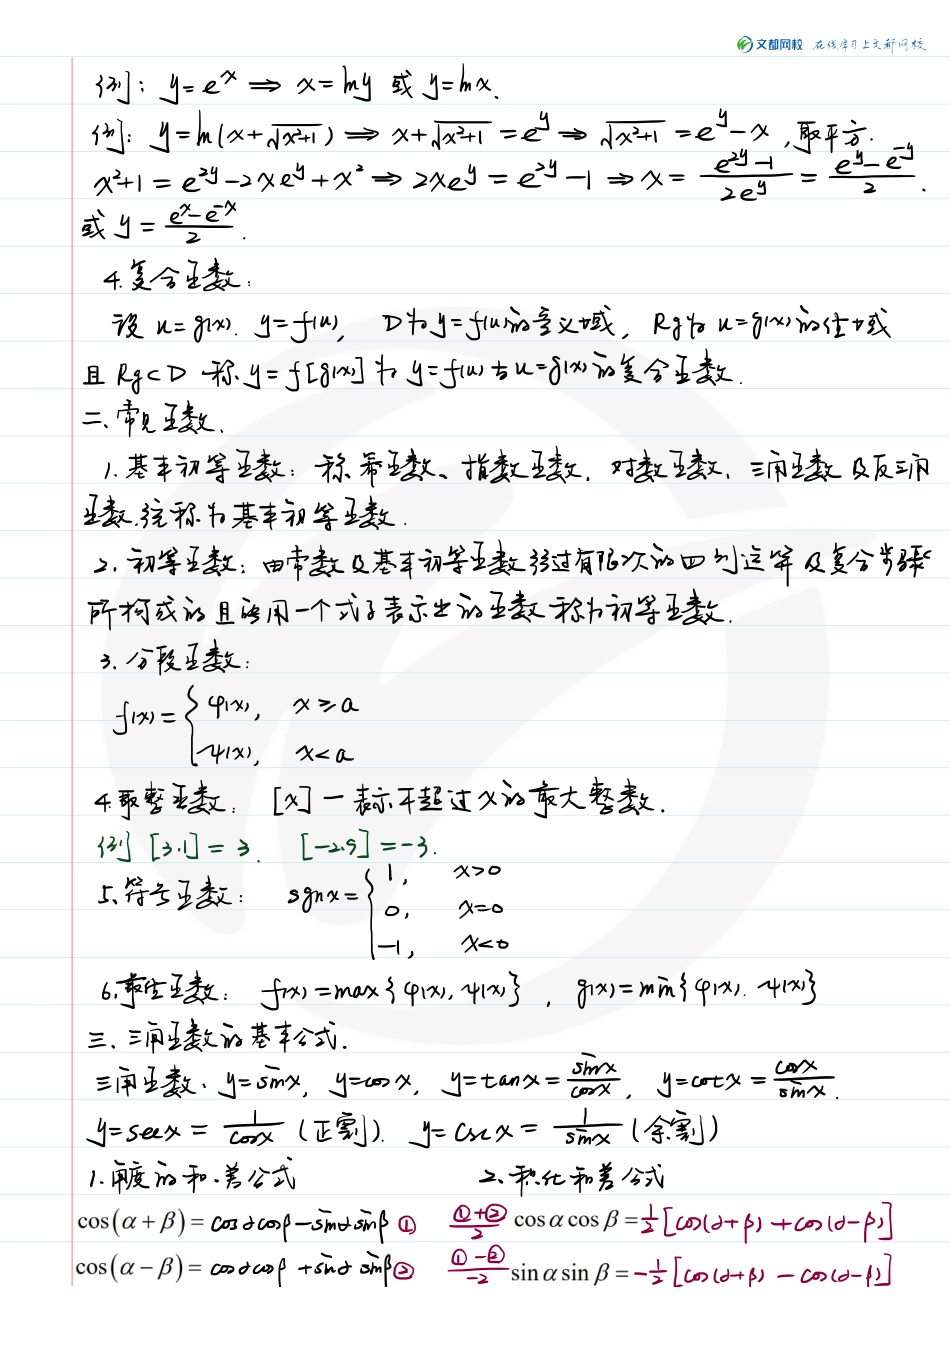 文都网校 在线学习上文都网校
例: y=eˣ ⟹ x=lny 或 y=lnx.
例: y=ln(x+√(x²+1)) ⟹ x+√(x²+1) =e^y ⟹ √(x²+1) =e^y-x ,取平方.
x²+1=e^{2y}-2xe^y+x² ⟹ 2xe^y=e^{2y}-1 ⟹ x= (e^{2y}-1)/(2e^y) = (e^y-e^{-y})/2 .
或 y= (eˣ-e^{-x})/2 .
4.复合函数:
设 u=g(x). y=f(u), D为y=f(u)的定义域, Rg为 u=g(x)的值域
且 Rg⊂D 称.y=f[g(x)]为 y=f(u)与u=g(x)的复合函数.
二、常见函数.
1.基本初等函数: 称 幂函数、指数函数. 对数函数. 三角函数及反三角
函数.统称为基本初等函数.
2.初等函数: 由常数及基本初等函数经过有限次的四则运算及复合步骤
所构成的且能用一个式子表示出的函数称为初等函数.
3.分段函数:
f(x)= { φ(x), x≥a
ψ(x), x<a
4.取整函数: [x] — 表示不超过x的最大整数.
例 [3.1]=3. [-2.9]=-3.
5、符号函数: sgnx= { 1, x>0
0, x=0
-1, x<0
6.最值函数: f(x)=max{φ(x),ψ(x)} , g(x)=min{φ(x).ψ(x)}
三、三角函数的基本公式.
三角函数. y=sinx, y=cosx, y=tanx= sinx/cosx , y=cotx= cosx/sinx .
y=secx= 1/cosx (正割). y=cscx= 1/sinx (余割)
1.角度的和.差公式 2、积化和差公式
cos(α+β)=cosαcosβ-sinαsinβ ① (①+②)/2 cosαcosβ=½[cos(α+β)+cos(α-β)]
cos(α-β)=cosαcosβ+sinαsinβ ② (①-②)/-2 sinαsinβ=-½[cos(α+β)-cos(α-β)]